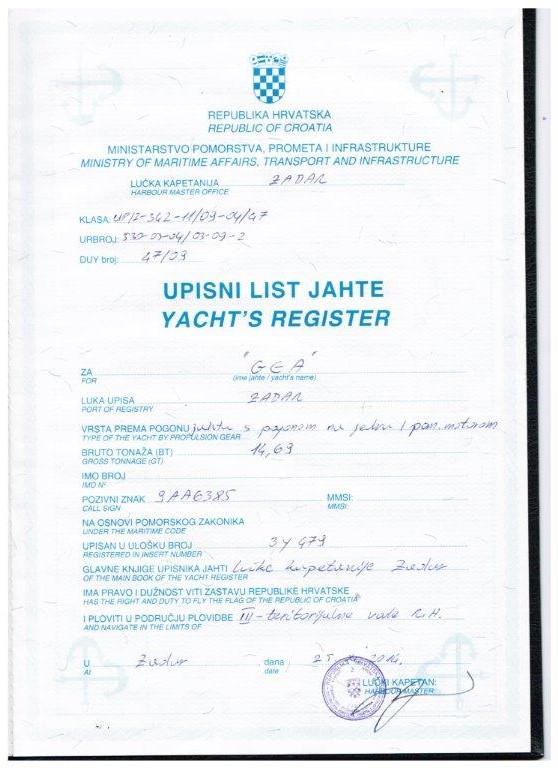 REPUBLIKA HRVATSKA
REPUBLIC OF CROATIA
MINISTARSTVO POMORSTVA, PROMETA I INFRASTRUKTURE
MINISTRY OF MARITIME AFFAIRS, TRANSPORT AND INFRASTRUCTURE
LUČKA KAPETANIJA ZADAR
HARBOUR MASTER OFFICE
KLASA: UP/I-342-11/09-04/47
URBROJ: 530-03-04/03-09-2
DUY broj: 47/09
UPISNI LIST JAHTE
YACHT'S REGISTER
ZA "GEA"
FOR (ime jahte / yacht's name)
LUKA UPISA ZADAR
PORT OF REGISTRY
VRSTA PREMA POGONU jahta s pogonom na jedra i pom. motorom
TYPE OF THE YACHT BY PROPULSION GEAR
BRUTO TONAŽA (BT) 14,69
GROSS TONNAGE (GT)
IMO BROJ
IMO Nº
POZIVNI ZNAK 9AA6385 MMSI:
CALL SIGN MMSI:
NA OSNOVI POMORSKOG ZAKONIKA
UNDER THE MARITIME CODE
UPISAN U ULOŠKU BROJ 3Y479
REGISTERED IN INSERT NUMBER
GLAVNE KNJIGE UPISNIKA JAHTI Lučke kapetanije Zadar
OF THE MAIN BOOK OF THE YACHT REGISTER
IMA PRAVO I DUŽNOST VITI ZASTAVU REPUBLIKE HRVATSKE
HAS THE RIGHT AND DUTY TO FLY THE FLAG OF THE REPUBLIC OF CROATIA
I PLOVITI U PODRUČJU PLOVIDBE III - teritorijalne vode R.H.
AND NAVIGATE IN THE LIMITS OF
U Zadar dana 25. 2014.
At date
LUČKI KAPETAN:
HARBOUR MASTER: